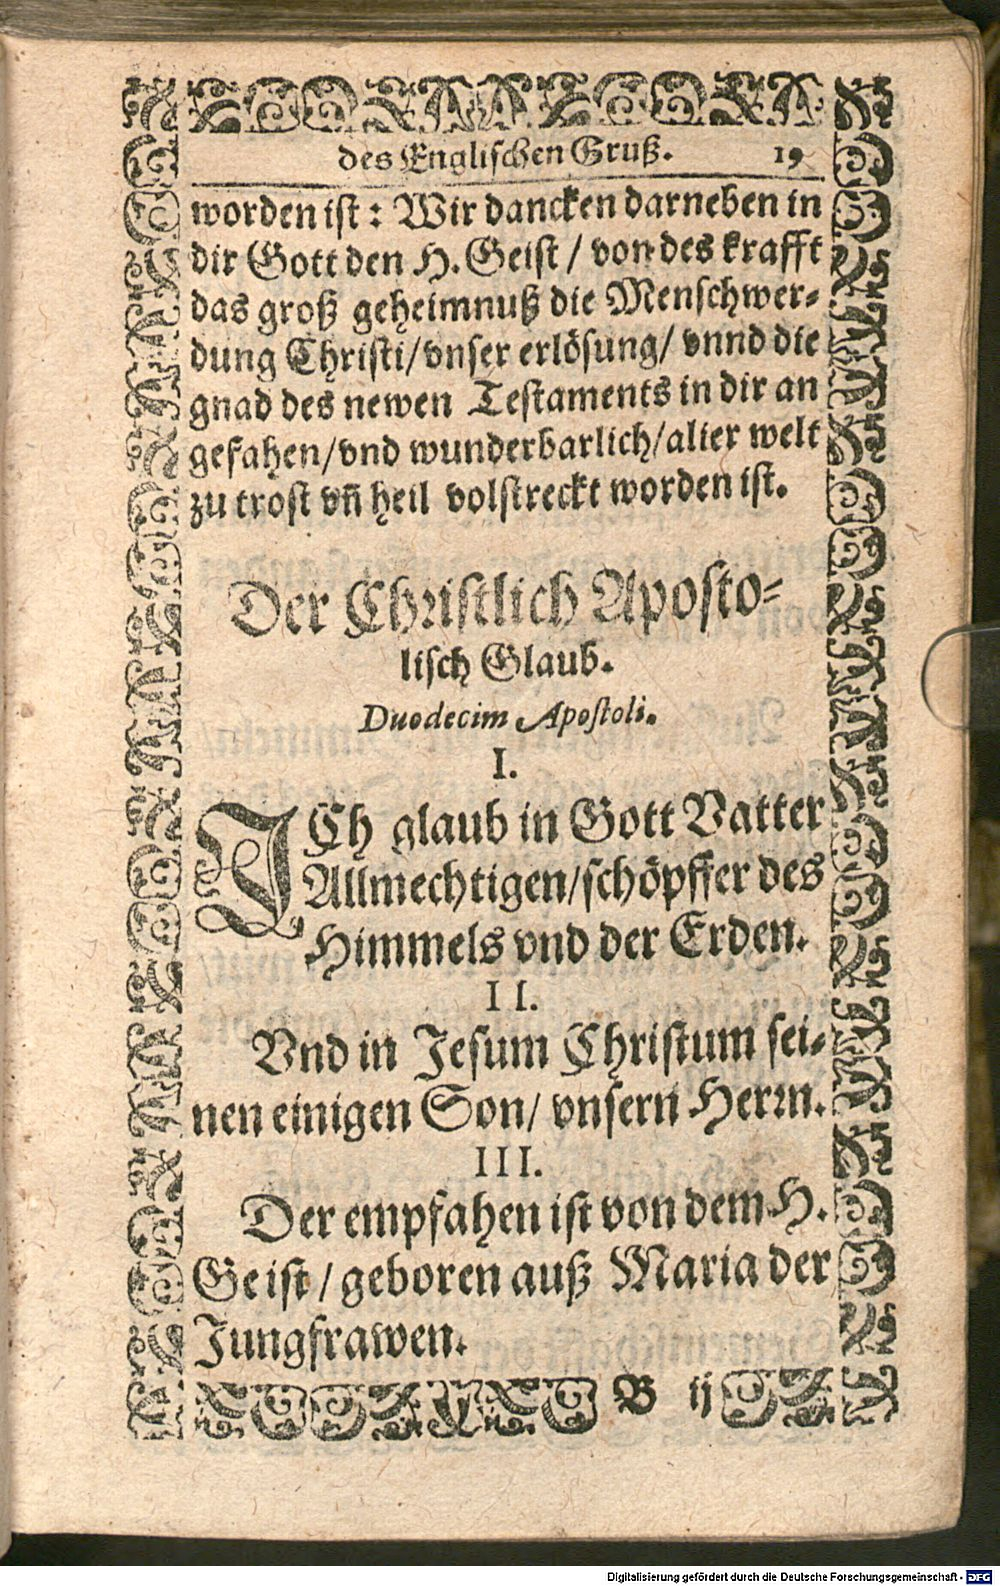 des Englischen Gruß. 19
worden ist: Wir dancken darneben in
dir Gott den H. Geist / von des krafft
das groß geheimnuß die Menschwer-
dung Christi/vnser erlösung/ vnnd die
gnad des newen Testaments in dir an
gefahen/vnd wunderbarlich/aller welt
zu trost vn̄ heil volstreckt worden ist.
Der Christlich Aposto-
lisch Glaub.
Duodecim Apostoli.
I.
ICh glaub in Gott Vatter
Allmechtigen/schöpffer des
Himmels vnd der Erden.
II.
Vnd in Jesum Christum sei-
nen einigen Son/ vnsern Herrn.
III.
Der empfahen ist von dem H.
Geist / geboren auß Maria der
Jungfrawen.
B ij
Digitalisierung gefördert durch die Deutsche Forschungsgemeinschaft - DFG